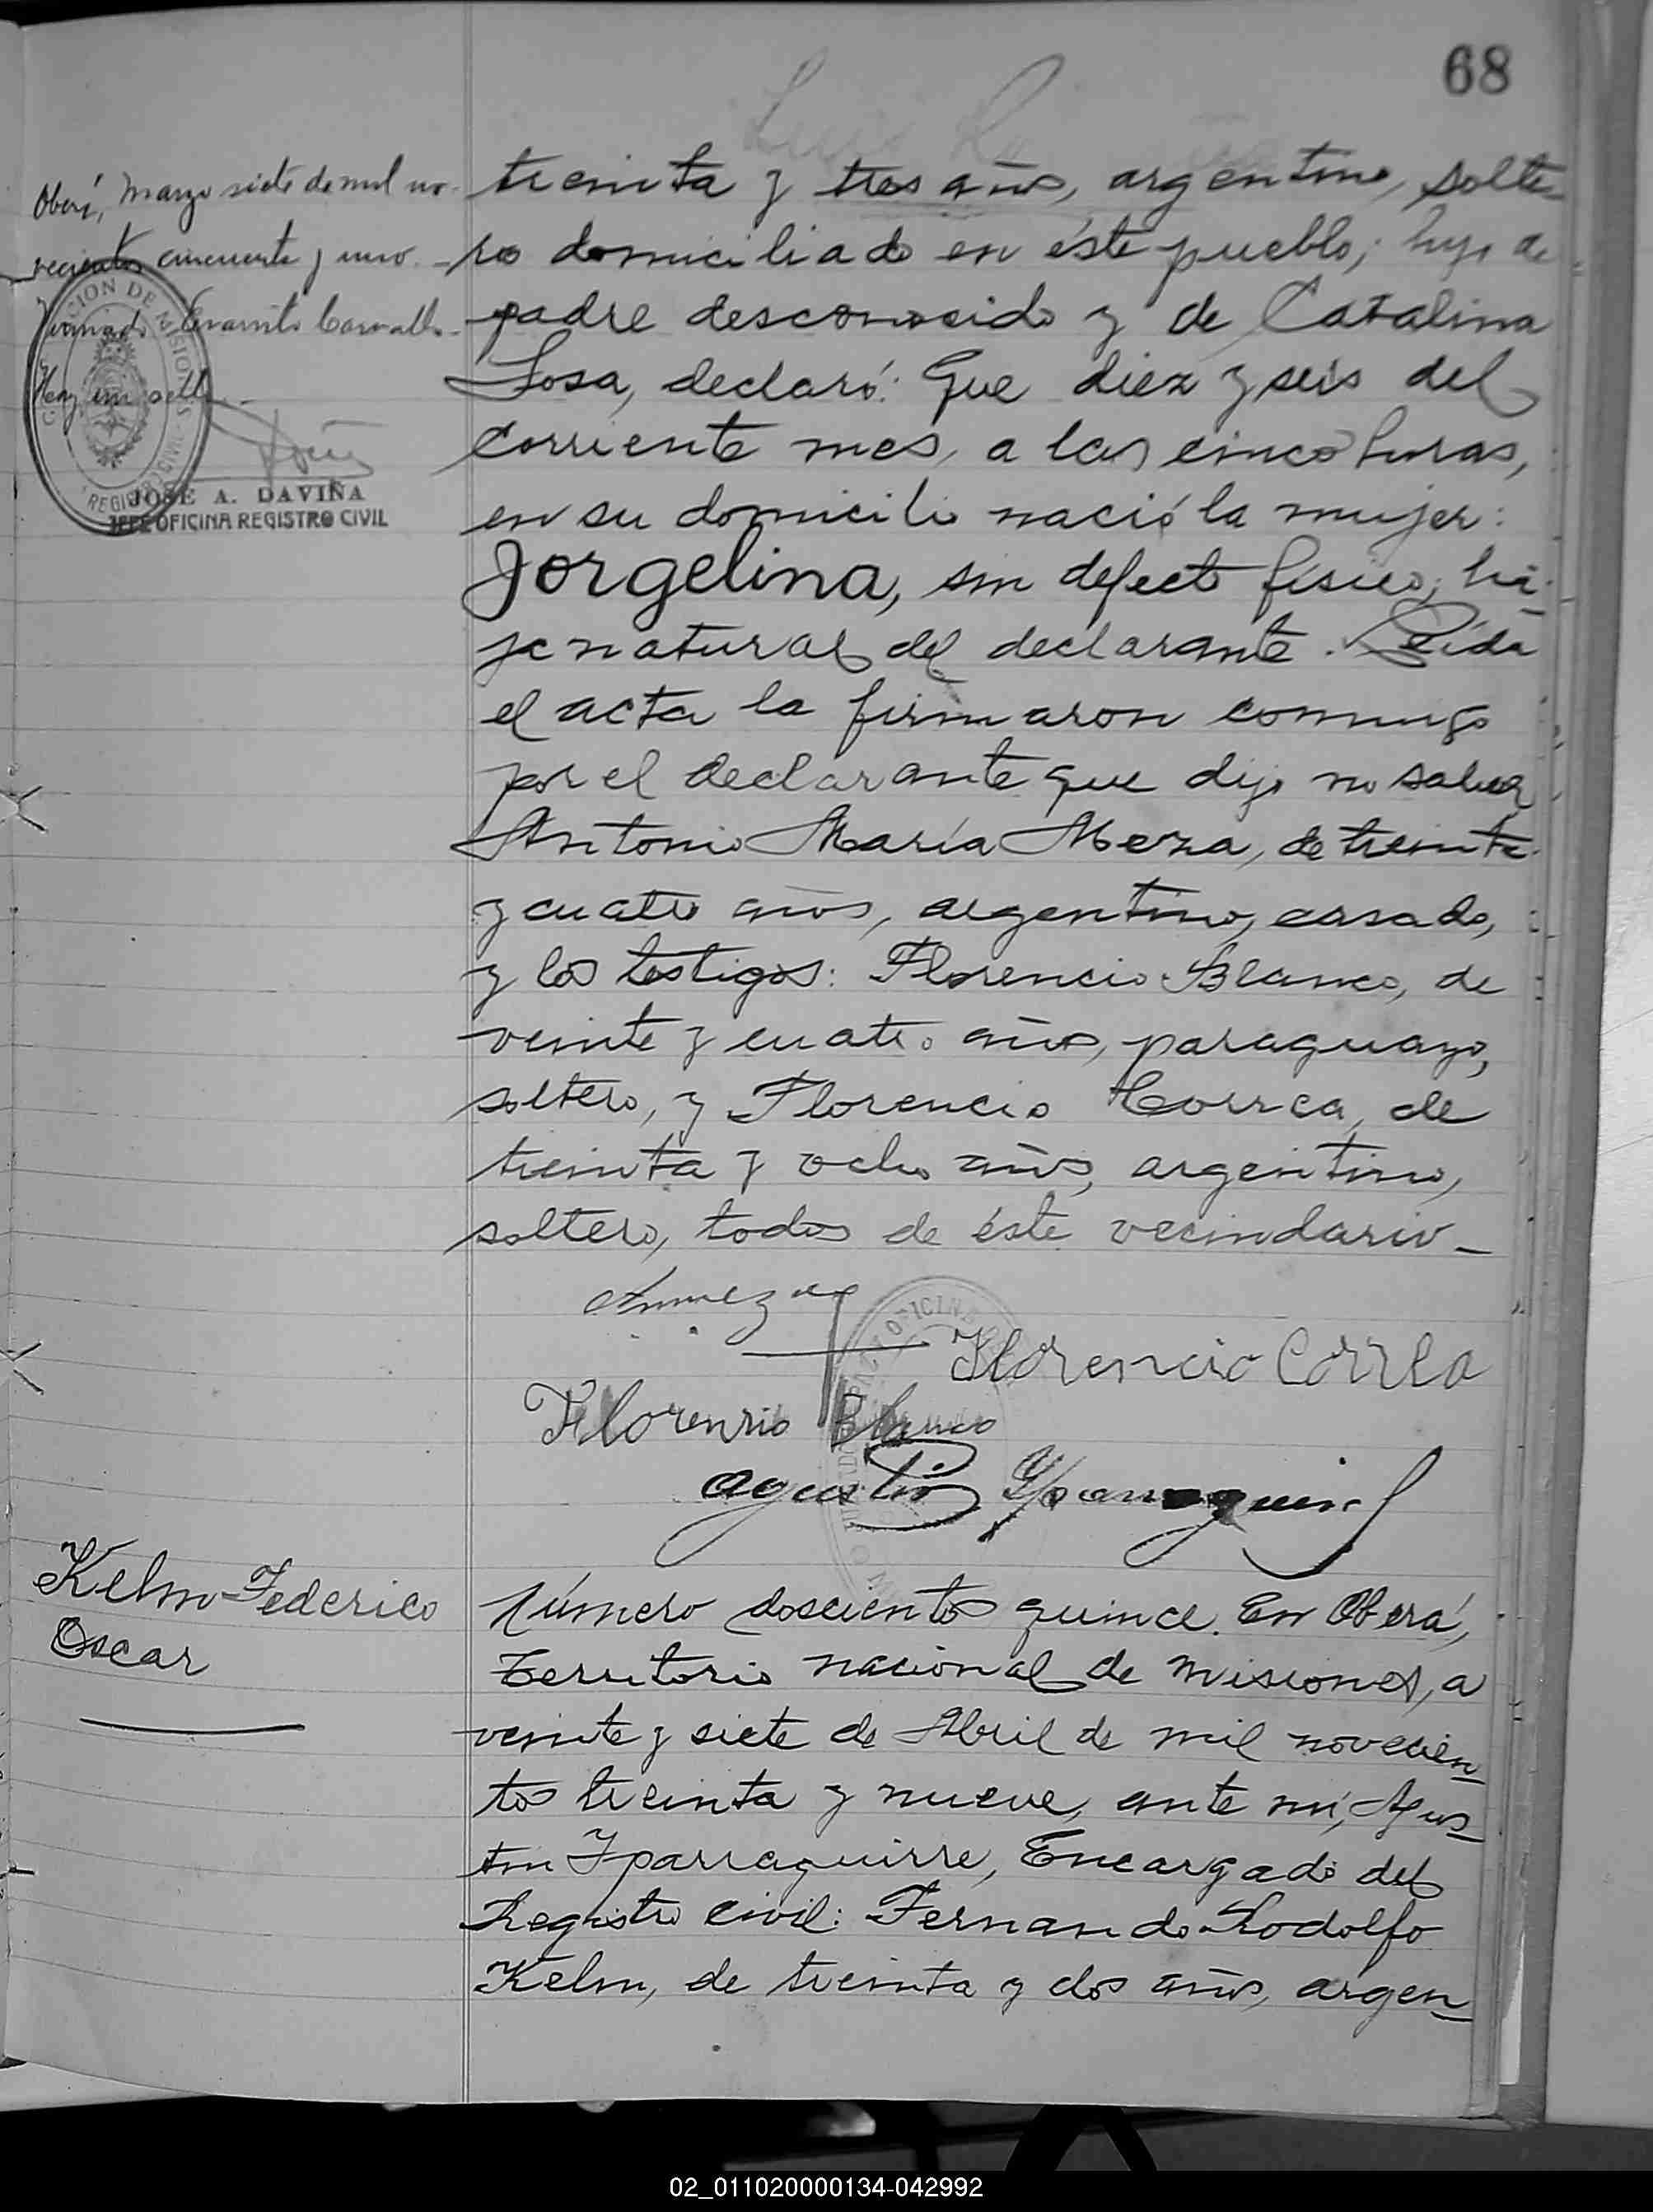 68
Oberá, Marzo siete de mil no-
vecientos cincuenta y uno. -
Firmado Evaristo Carvallo -
Hay un sello.
JOSE A. DAVIÑA
JEFE OFICINA REGISTRO CIVIL
treinta y tres años, argentino, solte-
ro domiciliado en éste pueblo; hijo de
padre desconocido y de Catalina
Sosa, declaró: Que diez y seis del
corriente mes, a las cinco horas,
en su domicilio nació la mujer:
Jorgelina, sin defecto físico, hi-
ja natural del declarante. Leída
el acta la firmaron conmigo
por el declarante que dijo no saber
Antonio María Meza, de treinta
y cuatro años, argentino, casado,
y los testigos: Florencio Blanco, de
veinte y cuatro años, paraguayo,
soltero, y Florencio Correa, de
treinta y ocho años, argentino,
soltero, todos de éste vecindario -
Florencio Correa
Florensio Blanco
Agustín Yparraguirre
Kelm Federico
Oscar
Número doscientos quince. En Oberá,
Territorio nacional de Misiones, a
veinte y siete de Abril de mil novecien-
tos treinta y nueve, ante mí, Agus-
tin Yparraguirre, Encargado del
Registro civil: Fernando Rodolfo
Kelm, de treinta y dos años, argen-
02_011020000134-042992